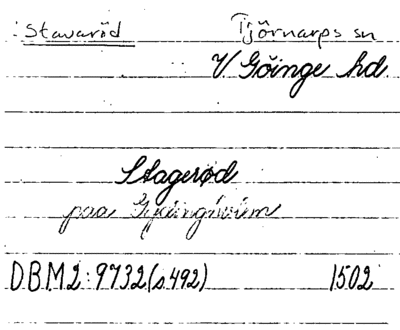 Stavaröd Tjörnarps sn
V. Göinge hd.
Stagerød
paa
D.B.M2:9732(s.492) 1502